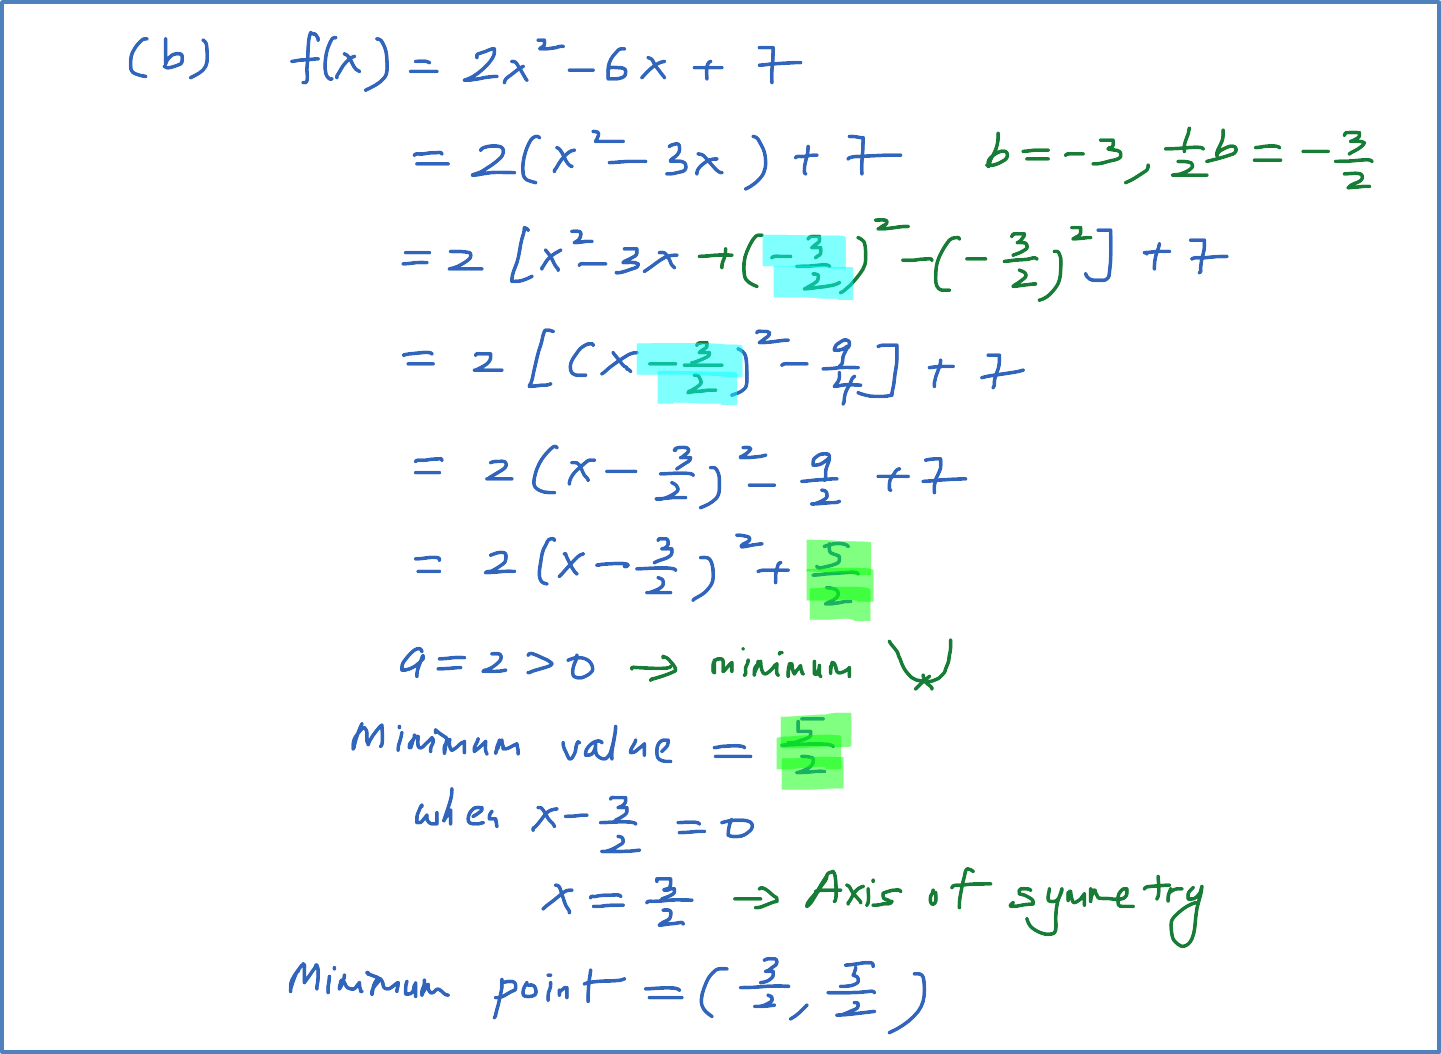 (b) f(x) = 2x² - 6x + 7
= 2(x² - 3x) + 7 b = -3, 1/2 b = -3/2
= 2[x² - 3x + (-3/2)² - (-3/2)²] + 7
= 2[(x - 3/2)² - 9/4] + 7
= 2(x - 3/2)² - 9/2 + 7
= 2(x - 3/2)² + 5/2
a = 2 > 0 → minimum
Minimum value = 5/2
when x - 3/2 = 0
x = 3/2 → Axis of symmetry
Minimum point = (3/2, 5/2)